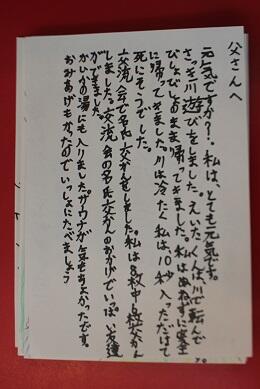 父さんへ
元気ですか?私は、とても元気です。
さっき川遊びをしました。えいたくんは川で転んで
びしょびしょのまま帰ってきました。私はぬれずに安全
に帰ってきました。川は冷たく私は、10秒入っただけで
死にそうでした。
交流会で名氏交かんをしました。私は8枚中6枚交かん
しました。交流会の名氏交かんのおかげでいっぱい友達
ができました。
かいかの湯にも入りました。サウナが気もちよかったです。
おみあげもかったのでいっしょにたべましょう